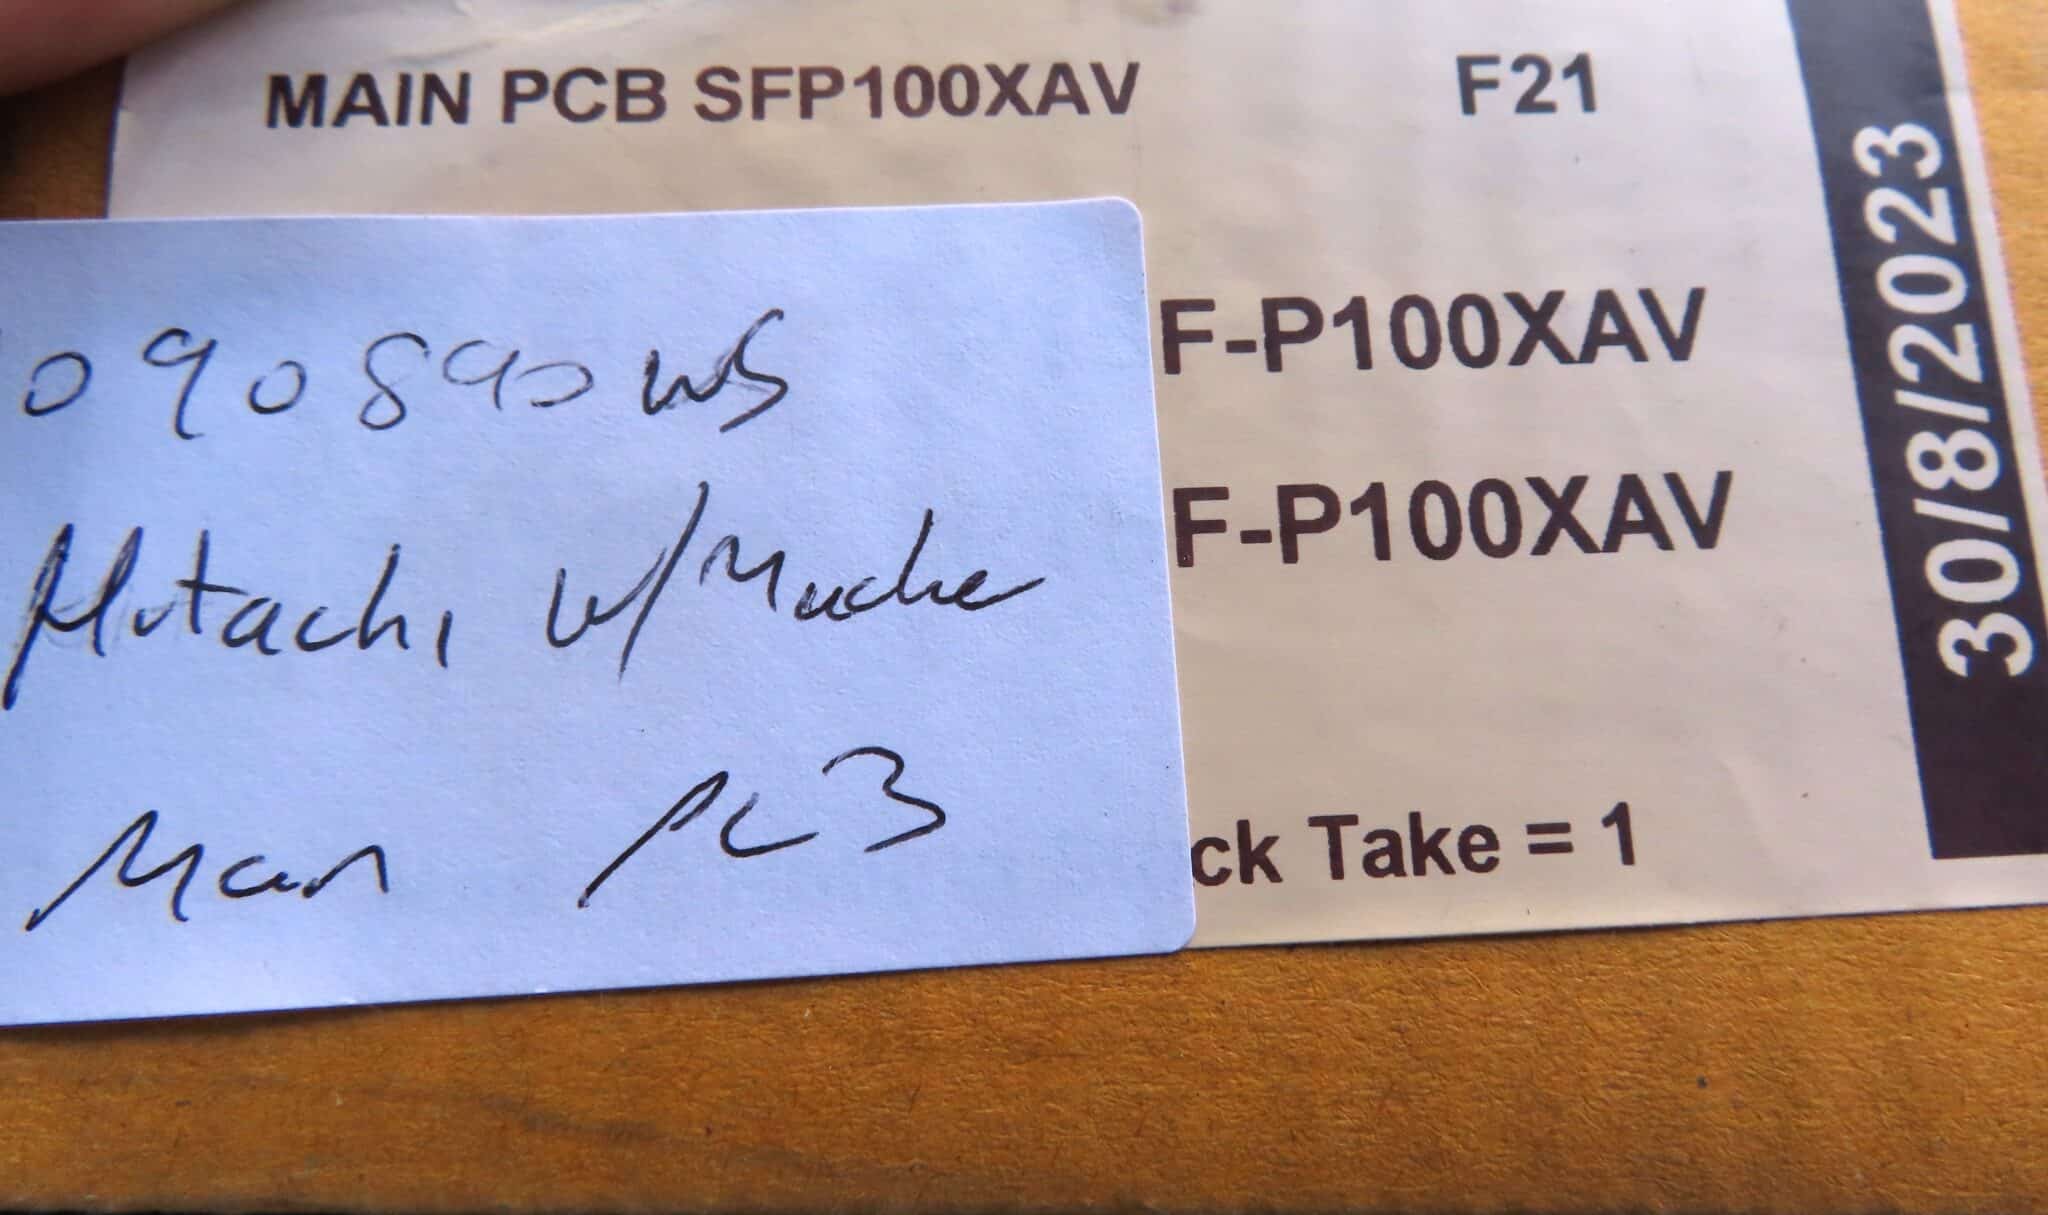 MAIN PCB SFP100XAV F21
F-P100XAV
F-P100XAV
ck Take = 1
30/8/2023
090890WS
Hitachi w/Machine
Main PCB